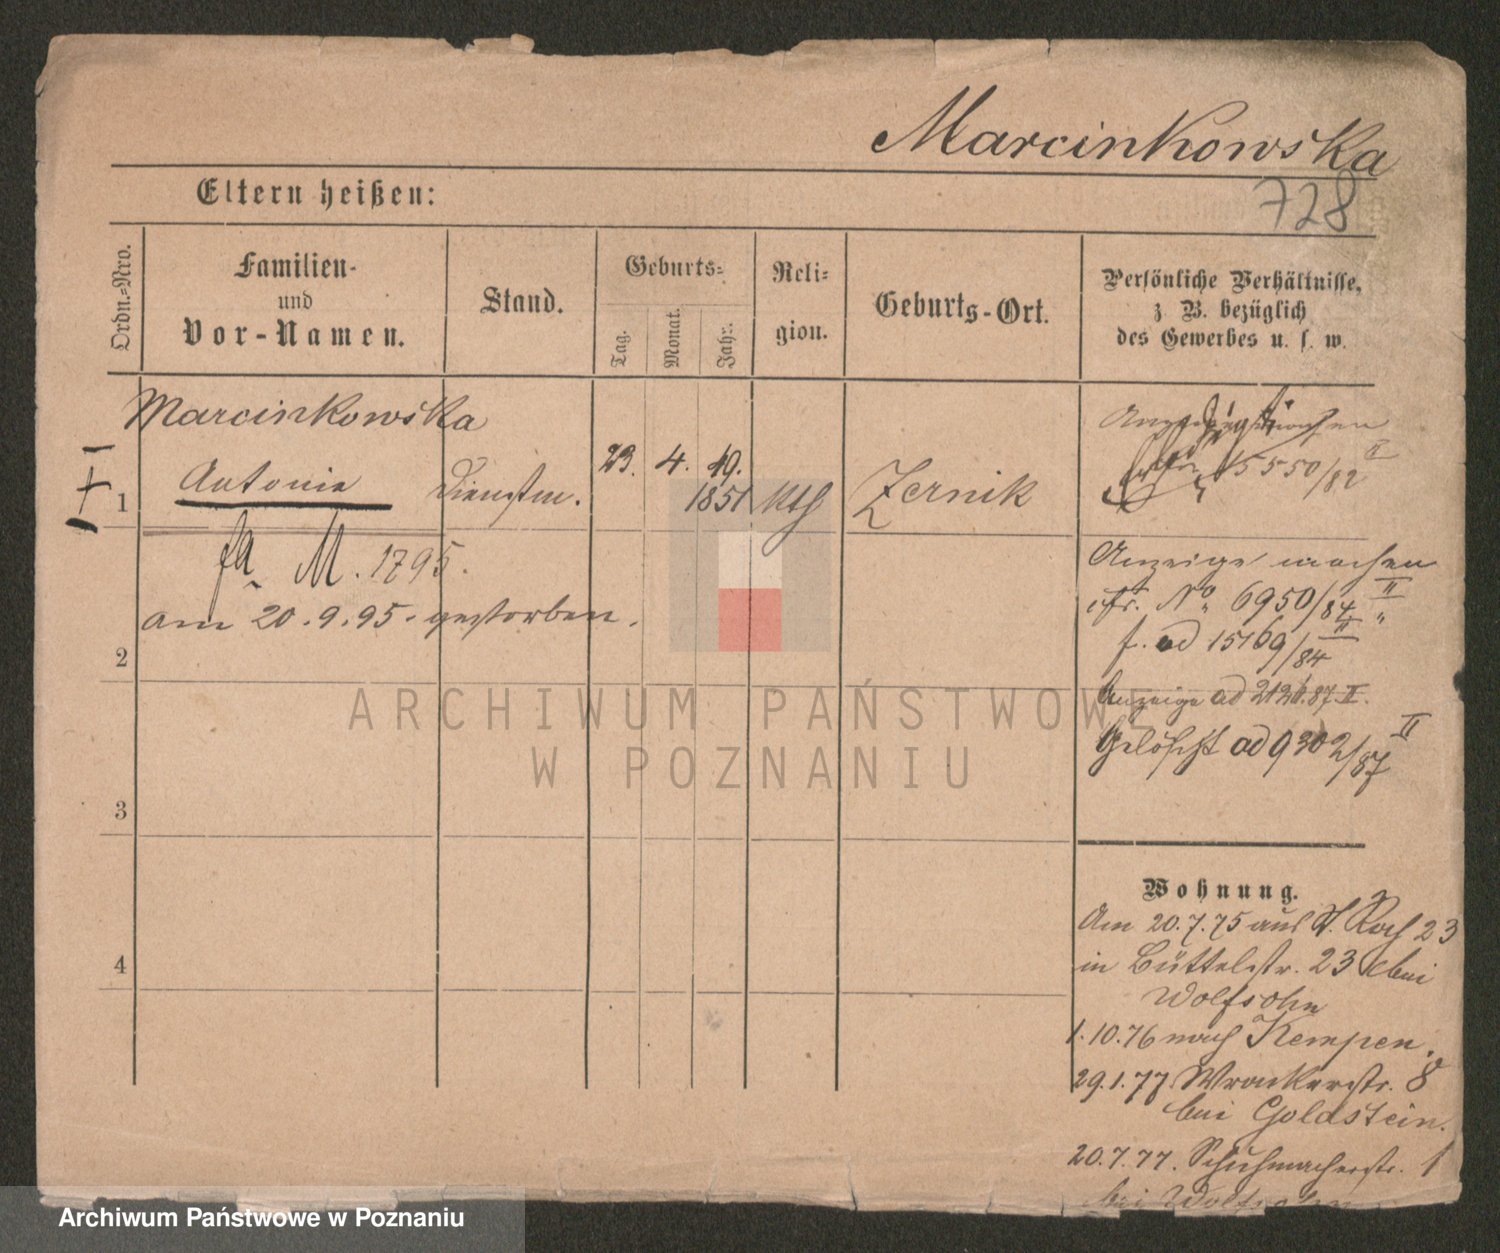 Marcinkowska
728
Eltern heißen:
Ordn.-Nro.
Familien-
und
Vor-Namen.
Stand.
Geburts-
Tag.
Monat.
Jahr.
Reli-
gion.
Geburts-Ort.
Persönliche Verhältnisse,
z B. bezüglich
des Gewerbes u. s. w.
Marcinkowska
1
Antonie
Dienstm.
23. 4. 49.
1851
kth
Zernik
M. 1795.
am 20.9.95. gestorben.
2
3
4
15550/82 II
Anzeige machen
cfr. No 6950/84 II
f. ad 15169/84 II
Anzeige ad 87. II.
Gelöscht ad 9302/87 II
Wohnung.
Am 20.7.75 aus St. Roch 23
in Büttelstr. 23 bei
Wolfsohn
1.10.76 nach Kempen.
29.1.77 Wronkerstr. 8
bei Goldstein.
20.7.77. Schuhmacherstr. 1
bei Wolfsohn
ARCHIWUM PAŃSTWOWE
W POZNANIU
Archiwum Państwowe w Poznaniu